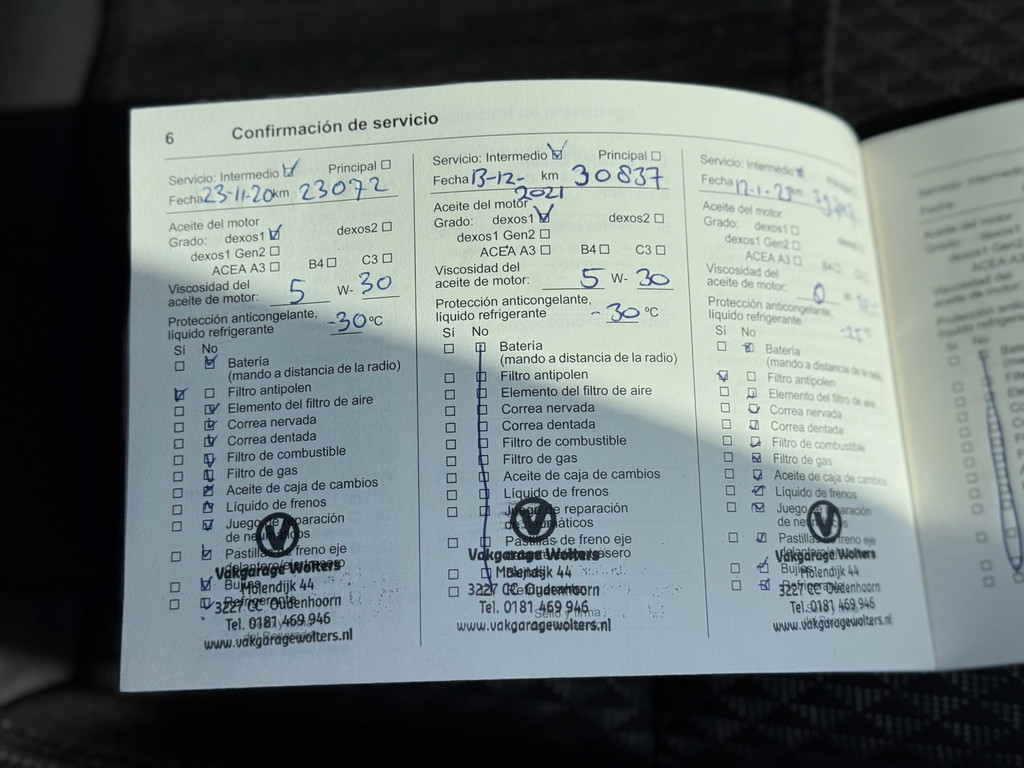 6 Confirmación de servicio
Servicio: Intermedio Principal
Fecha 23-11-20 km 23072
Aceite del motor
Grado: dexos1 dexos2
dexos1 Gen2
ACEA A3 B4 C3
Viscosidad del
aceite de motor: 5 W- 30
Protección anticongelante,
líquido refrigerante -30 °C
Sí No
Batería
(mando a distancia de la radio)
Filtro antipolen
Elemento del filtro de aire
Correa nervada
Correa dentada
Filtro de combustible
Filtro de gas
Aceite de caja de cambios
Líquido de frenos
Juego de reparación
de neumáticos
Pastillas de freno eje
Bujías
Refrigerante
Vakgarage Wolters
Molendijk 44
3227 CC Oudenhoorn
Tel. 0181 469 946
www.vakgaragewolters.nl
Servicio: Intermedio Principal
Fecha 13-12- km 30837
2021
Aceite del motor
Grado: dexos1 dexos2
dexos1 Gen2
ACEA A3 B4 C3
Viscosidad del
aceite de motor: 5 W- 30
Protección anticongelante,
líquido refrigerante -30 °C
Sí No
Batería
(mando a distancia de la radio)
Filtro antipolen
Elemento del filtro de aire
Correa nervada
Correa dentada
Filtro de combustible
Filtro de gas
Aceite de caja de cambios
Líquido de frenos
Juego de reparación
de neumáticos
Pastillas de freno eje
Vakgarage Wolters
Molendijk 44
3227 CC Oudenhoorn
Tel. 0181 469 946
www.vakgaragewolters.nl
Servicio: Intermedio Principal
Fecha 12-1-23 km
Aceite del motor
Grado: dexos1 dexos2
dexos1 Gen2
ACEA A3 B4
Viscosidad del
aceite de motor: 0 W-
Protección anticongelante,
líquido refrigerante
Sí No
Batería
(mando a distancia de la radio)
Filtro antipolen
Elemento del filtro de aire
Correa nervada
Correa dentada
Filtro de combustible
Filtro de gas
Aceite de caja de cambios
Líquido de frenos
Juego de reparación
de neumáticos
Pastillas de freno eje
Bujías
Vakgarage Wolters
Molendijk 44
3227 CC Oudenhoorn
Tel. 0181 469 946
www.vakgaragewolters.nl